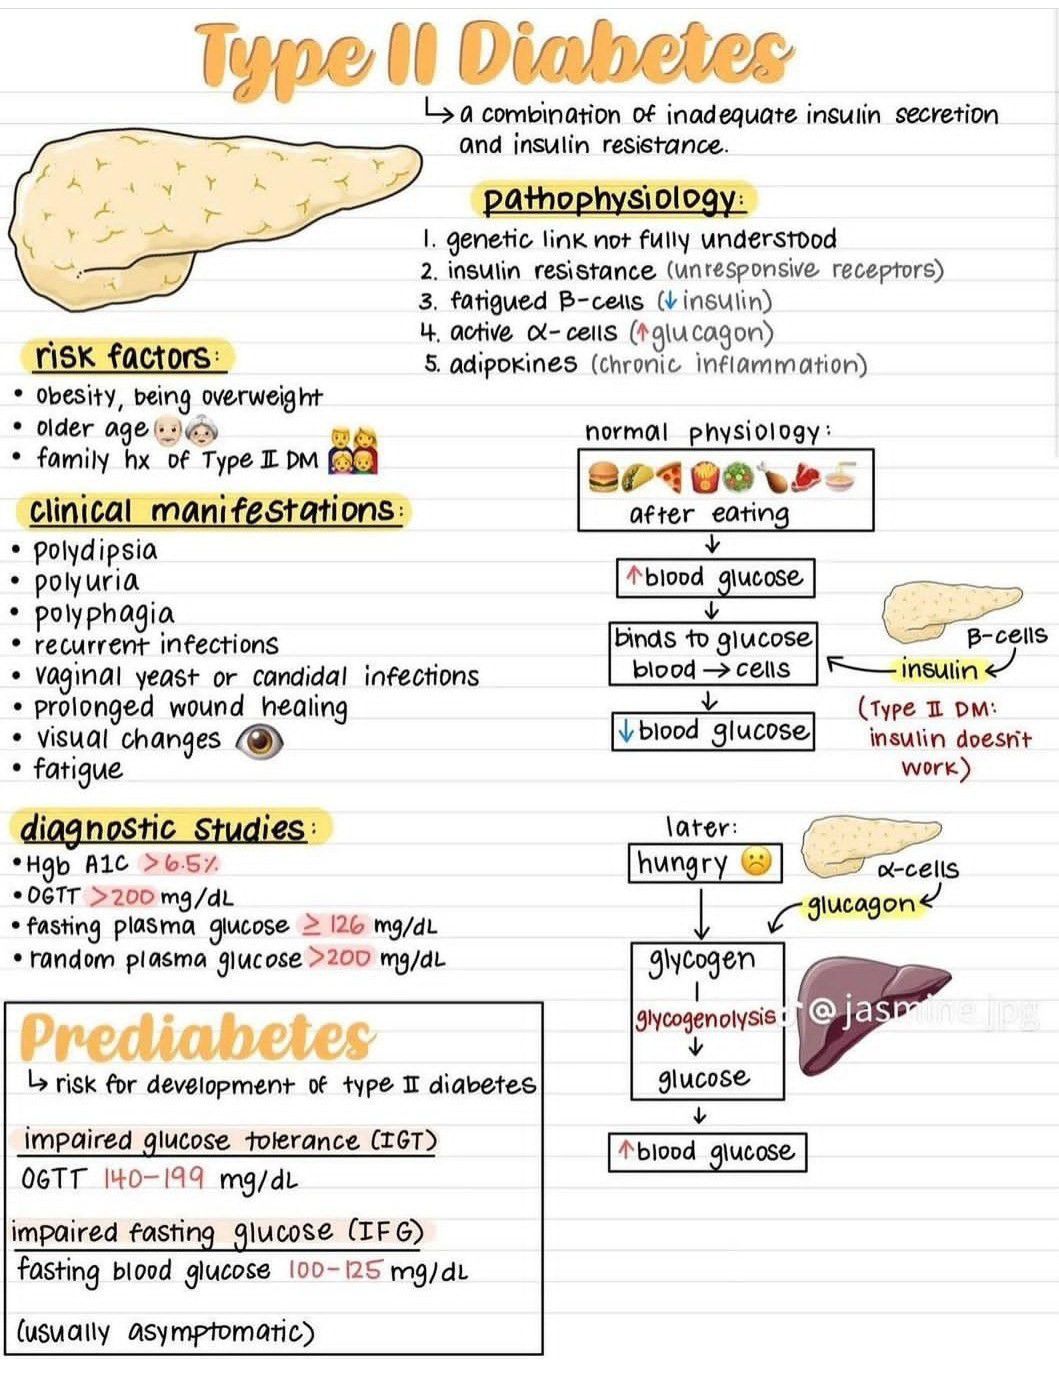 Type II Diabetes
↳ a combination of inadequate insulin secretion
and insulin resistance.
pathophysiology:
1. genetic link not fully understood
2. insulin resistance (unresponsive receptors)
3. fatigued B-cells (↓insulin)
4. active α-cells (↑glucagon)
5. adipokines (chronic inflammation)
risk factors:
• obesity, being overweight
• older age
• family hx of Type II DM
clinical manifestations:
• polydipsia
• polyuria
• polyphagia
• recurrent infections
• vaginal yeast or candidal infections
• prolonged wound healing
• visual changes
• fatigue
diagnostic studies:
• Hgb A1C >6.5%
• OGTT >200 mg/dL
• fasting plasma glucose ≥ 126 mg/dL
• random plasma glucose >200 mg/dL
Prediabetes
↳ risk for development of type II diabetes
impaired glucose tolerance (IGT)
OGTT 140-199 mg/dL
impaired fasting glucose (IFG)
fasting blood glucose 100-125 mg/dL
(usually asymptomatic)
normal physiology:
after eating
↓
↑blood glucose
↓
binds to glucose
blood → cells
↓
↓blood glucose
B-cells
insulin
(Type II DM:
insulin doesn't
work)
later:
hungry
α-cells
glucagon
glycogen
glycogenolysis
↓
glucose
↓
↑blood glucose
@jasmine.jpg